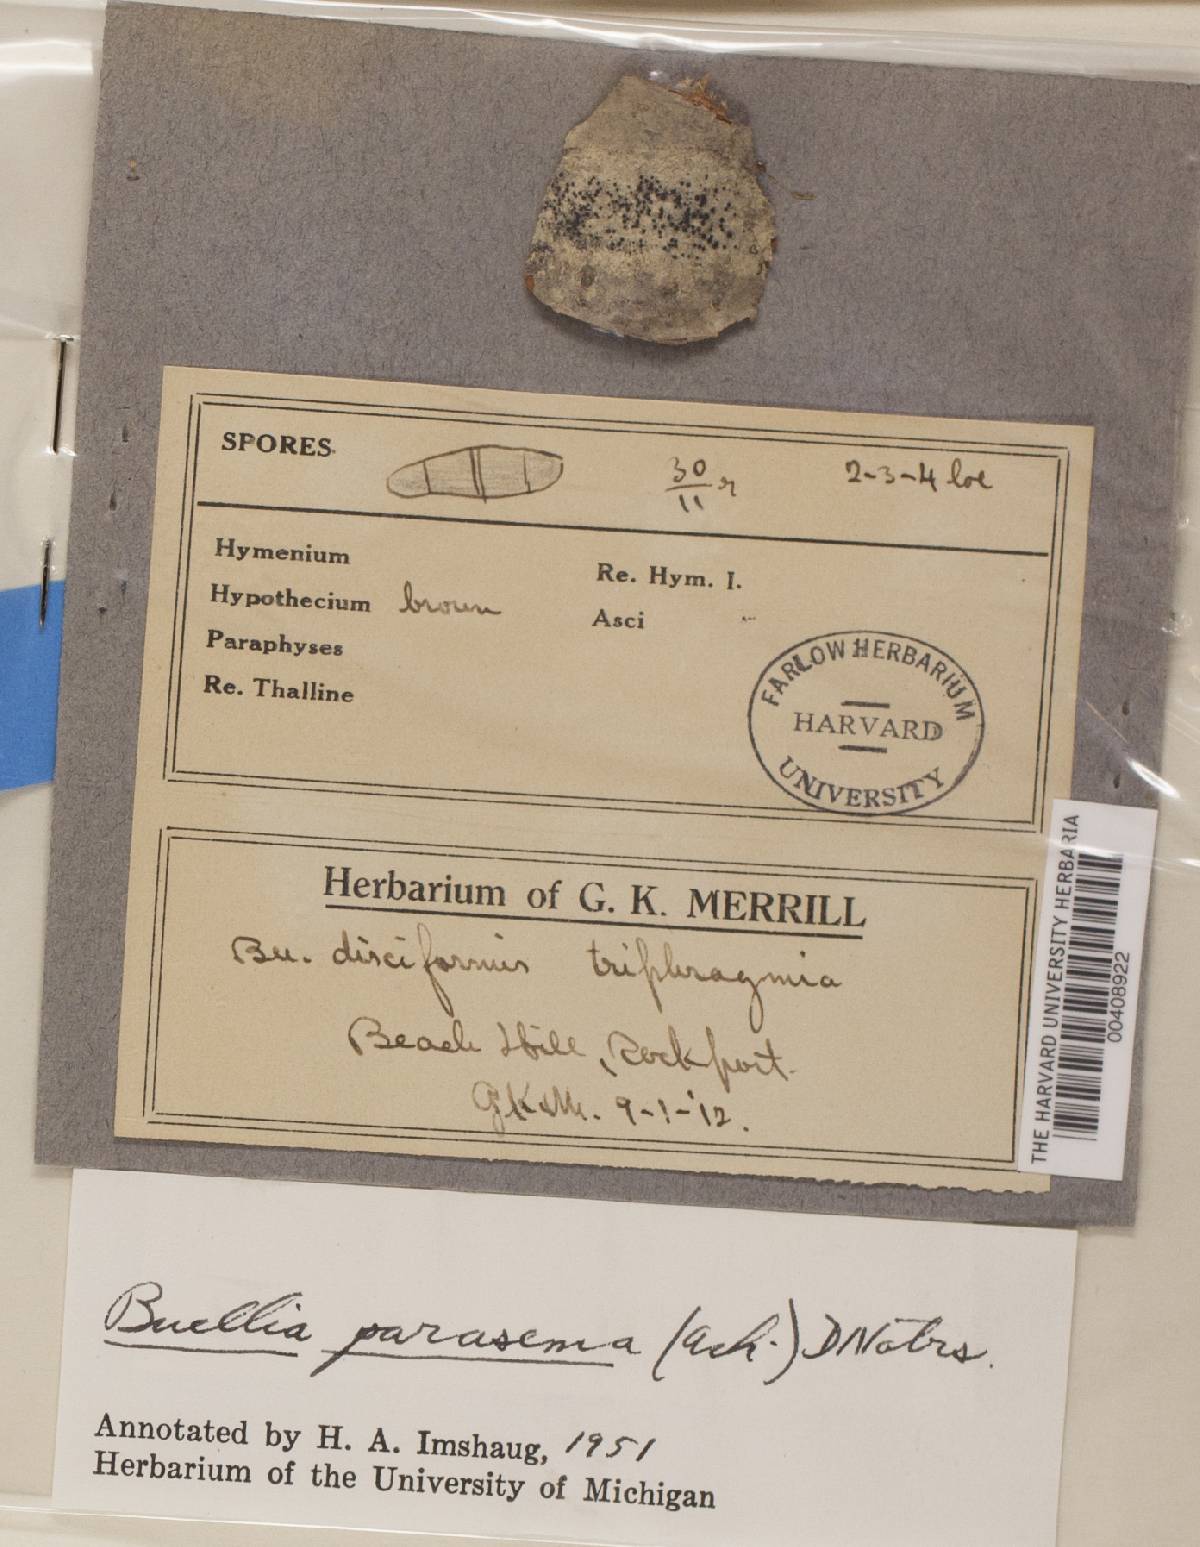 SPORES. 30/11 r 2-3-4 loc
Hymenium
Re. Hym. I.
Hypothecium brown
Asci
Paraphyses
Re. Thalline
FARLOW HERBARIUM
HARVARD
UNIVERSITY
Herbarium of G. K. MERRILL
Bu. disciformis triphragmia
Beach Hill, Rockport.
GKM. 9-1-'12.
THE HARVARD UNIVERSITY HERBARIA
00408922
Buellia parasema (Ach.) DNotrs.
Annotated by H. A. Imshaug, 1951
Herbarium of the University of Michigan